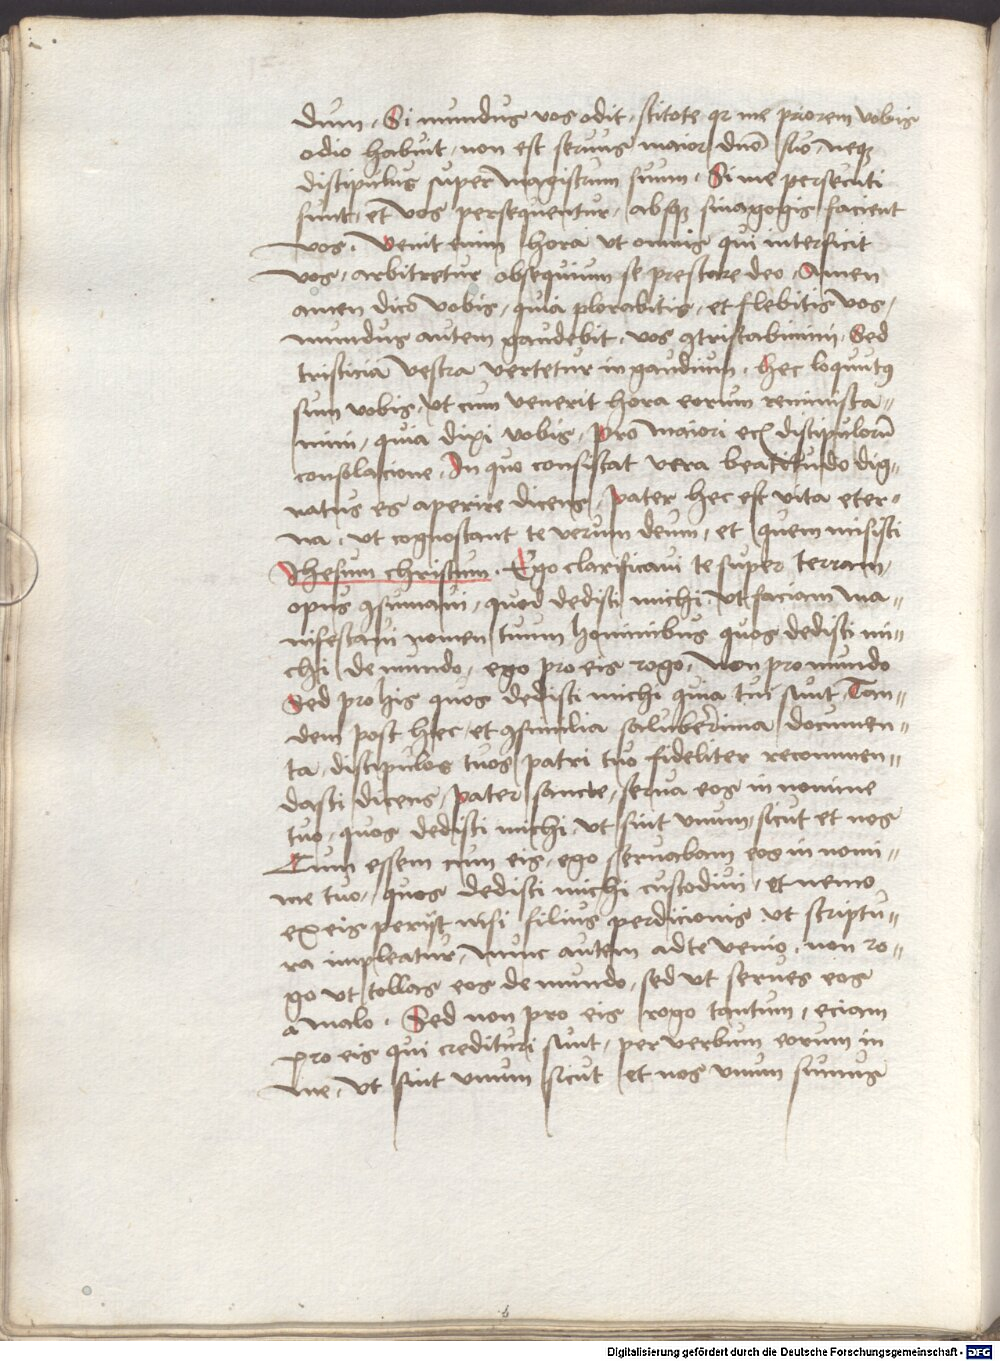 dum. Si mundus vos odit, scitote qr me priorem vobis
odio habuit, non est servus maior dno suo, neqz
discipulus super magistrum suum. Si me persecuti
sunt, et vos persequentur, absqz sinagogis facient
vos. Venit enim hora ut omnis qui interficit
vos, arbitretur obsequium se prestare deo. Amen
amen dico vobis, quia plorabitis, et flebitis vos,
mundus autem gaudebit, vos 9tristabimini. Sed
tristicia vestra vertetur in gaudium. Hec loqutus
sum vobis, ut cum venerit hora eorum reminisca=
mini, quia dixi vobis. Pro maiori discipulorū
consolacione. In quo consistat vera beatitudo dig=
natus es aperire dicens, Pater hec est vita eter=
na, ut cognoscant te verum deum, et quem misisti
Jhesum christum. Ego clarificavi te super terram,
opus 9sumavi, quod dedisti michi, ut faciam ma=
nifestavi nomen tuum hominibus quos dedisti mi=
chi de mundo, ego pro eis rogo, non pro mundo
Sed pro his quos dedisti michi quia tui sunt. Tan=
dem post hec, et 9similia saluberima documen=
ta, discipulos tuos patri tuo fideliter recommen=
dasti dicens, Pater sancte, serva eos in nomine
tuo, quos dedisti michi, ut sint unum, sicut et nos
Cum essem cum eis, ego servabam eos in nomi=
ne tuo, quos dedisti michi custodivi, et nemo
ex eis perijt nisi filius perdicionis ut scriptu=
ra impleatur, Nunc autem ad te venio, non ro=
go ut tollas eos de mundo, sed ut serves eos
a malo. Sed non pro eis rogo tantum, eciam
pro eis qui credituri sunt, per verbum eorum in
me, ut sint unum sicut et nos unum sumus
Digitalisierung gefördert durch die Deutsche Forschungsgemeinschaft - DFG